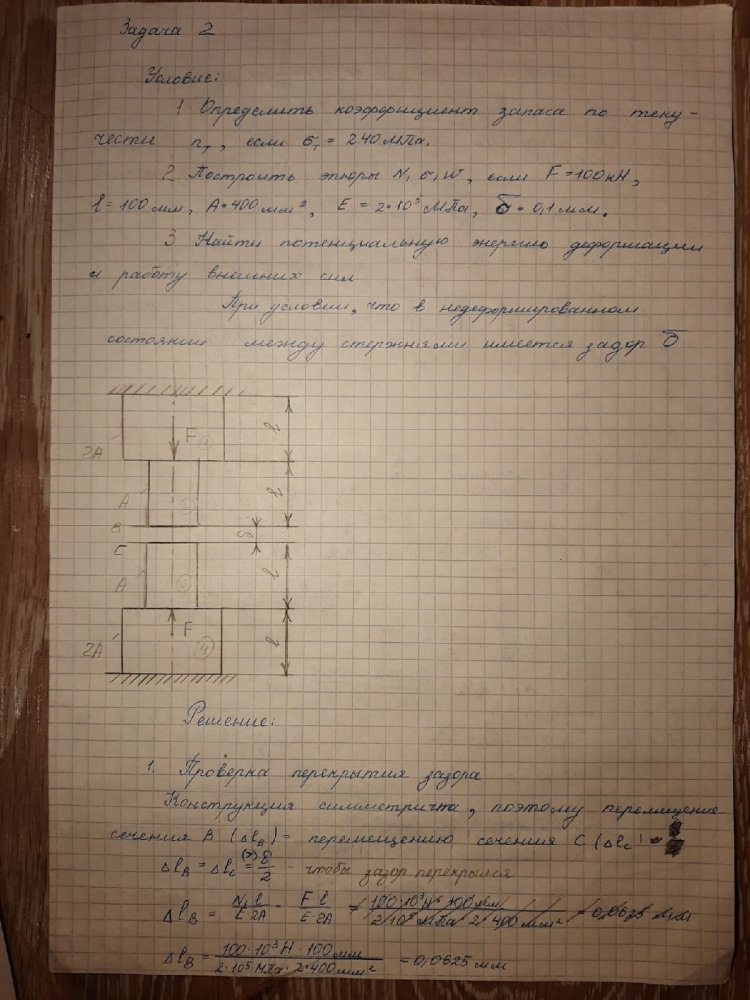 Задача 2
Условие:
1 Определить коэффициент запаса по теку-
чести nт, если σт = 240 МПа.
2 Построить эпюры N, σ, W, если F = 100 кН,
l = 100 мм, A = 400 мм², E = 2·10⁵ МПа, δ = 0,1 мм.
3 Найти потенциальную энергию деформации
и работу внешних сил.
При условии, что в недеформированном
состоянии между стержнями имеется зазор δ
2A
F
l
A
l
B
δ
C
A
l
F
2A
④
l
Решение:
1. Проверка перекрытия зазора
Конструкция симметрична, поэтому перемещение
сечения B (Δl_B) = перемещению сечения C (Δl_C)
Δl_B = Δl_C (≥)= δ/2 - чтобы зазор перекрылся
Δl_B = N₁l/E·2A = F·l/E·2A
Δl_B = 100·10³Н·100мм / 2·10⁵МПа·2·400мм² = 0,0625 мм